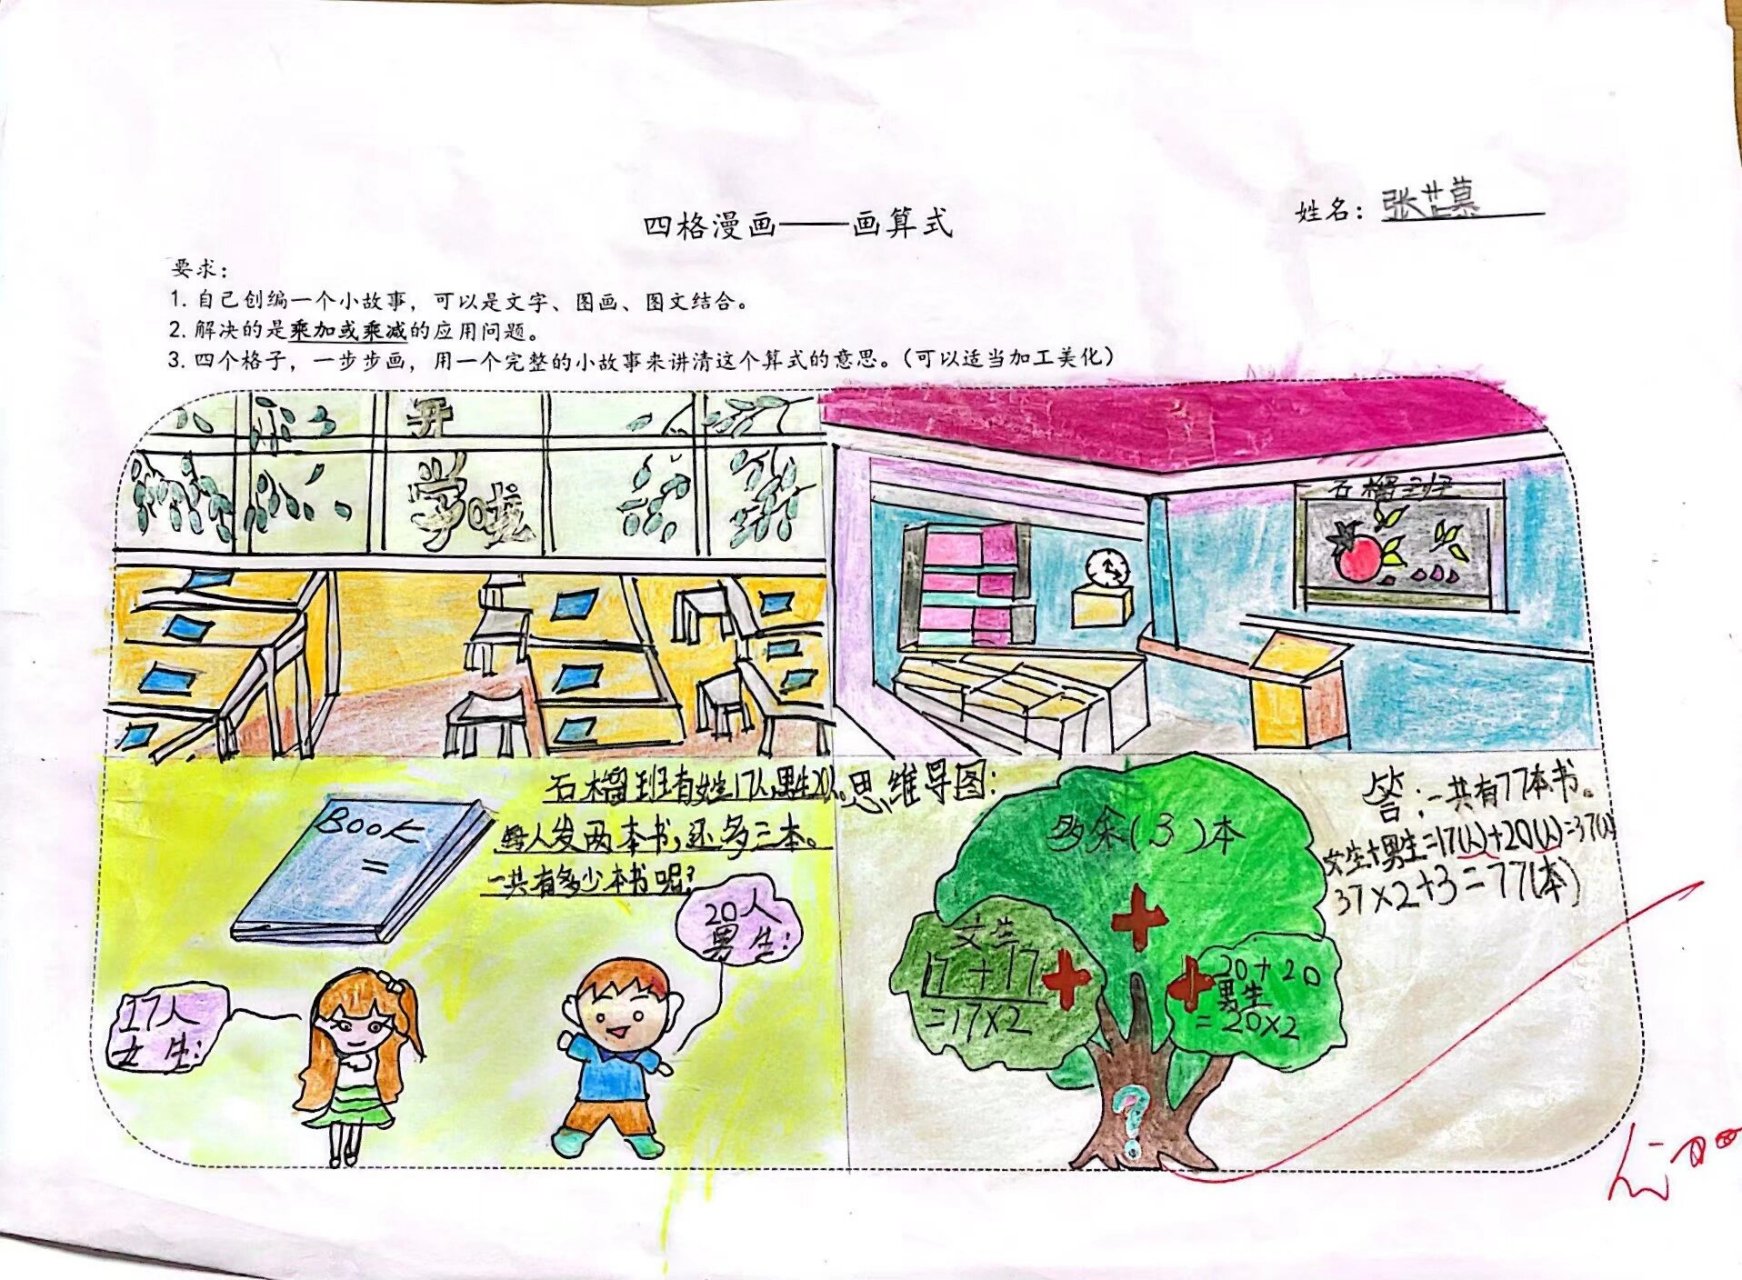 四格漫画——画算式
姓名：张芷慕
要求：
1. 自己创编一个小故事，可以是文字、图画、图文结合。
2. 解决的是乘加或乘减的应用问题。
3. 四个格子，一步步画，用一个完整的小故事来讲清这个算式的意思。（可以适当加工美化）
开
学啦
石榴班
石榴班有女生17人,男生20人。
每人发两本书,还多三本。
一共有多少本书呢?
BOOK
20人
男生:
17人
女生:
思维导图:
多余(3)本
女生
17+17
=17×2
20+20
男生
=20×2
?
答:一共有77本书。
女生+男生=17(人)+20(人)=37(人)
37×2+3=77(本)